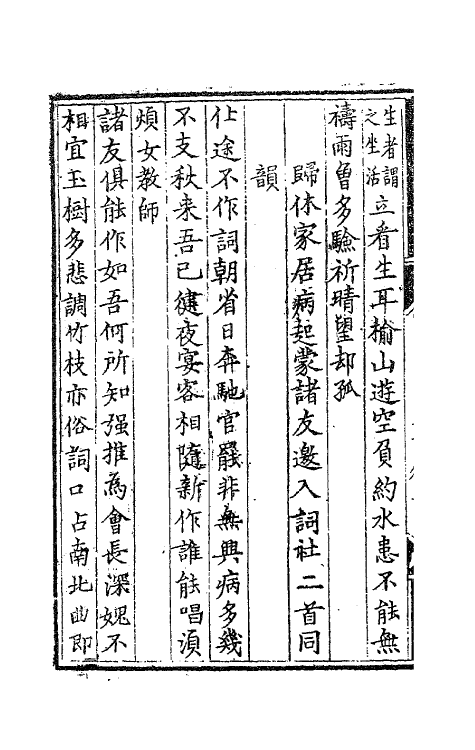 生者謂之坐活立看生耳輸山遊空負約水患不能無
禱雨曾多驗祈晴望却孤
歸休家居病起蒙諸友邀入詞社二首同
韻
仕途不作詞朝省日奔馳官罷非無興病多幾
不支秋来吾已健夜宴客相隨新作誰能唱湏
煩女教師
諸友俱能作如吾何所知强推為會長深媿不
相宜玉樹多悲調竹枝亦俗詞口占南北曲即